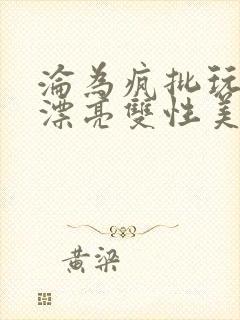 淪為瘋批玩
漂亮雙性美
黃梁